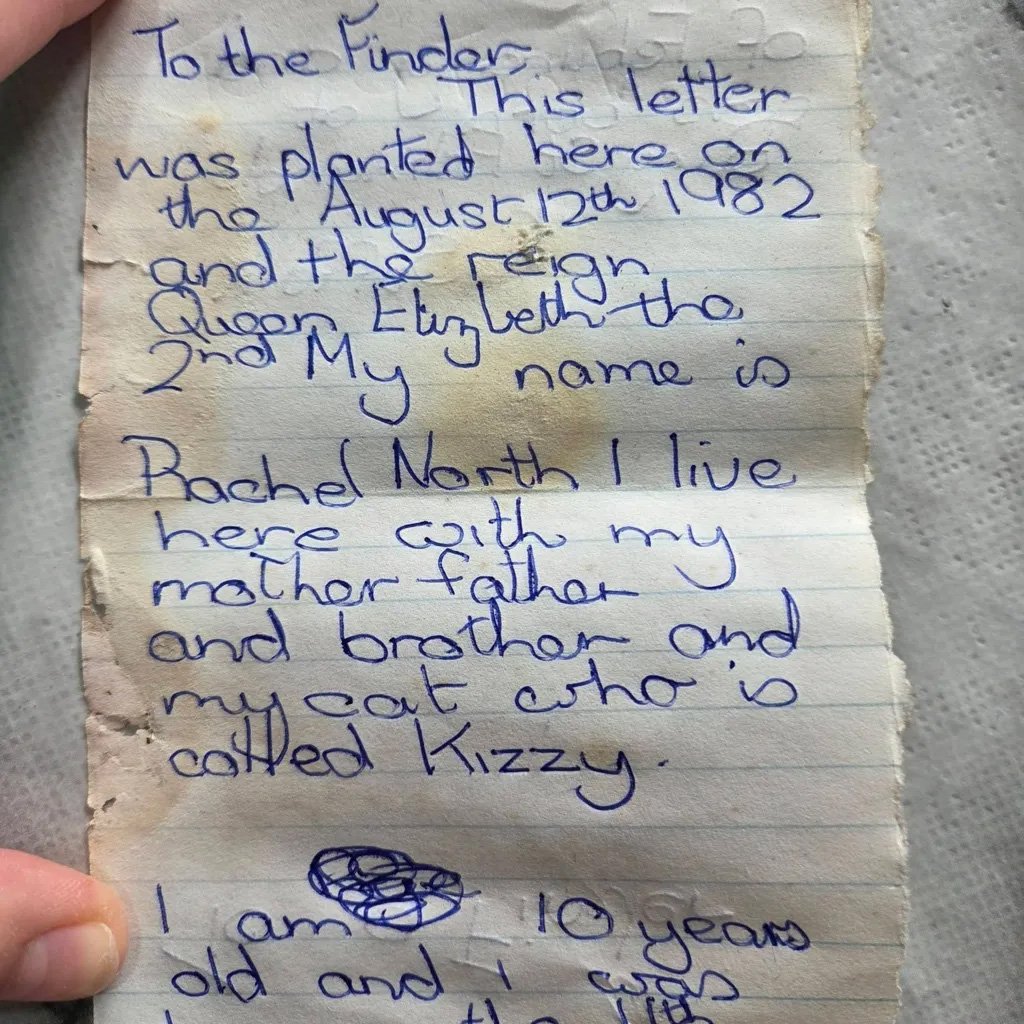 To the Finder,
This letter
was planted here on
the August 12th 1982
and the reign
Queen Elizbeth the
2nd My name is
Rachel North I live
here with my
mother father
and brother and
my cat who is
called Kizzy.
I am 10 years
old and I was
the 11th